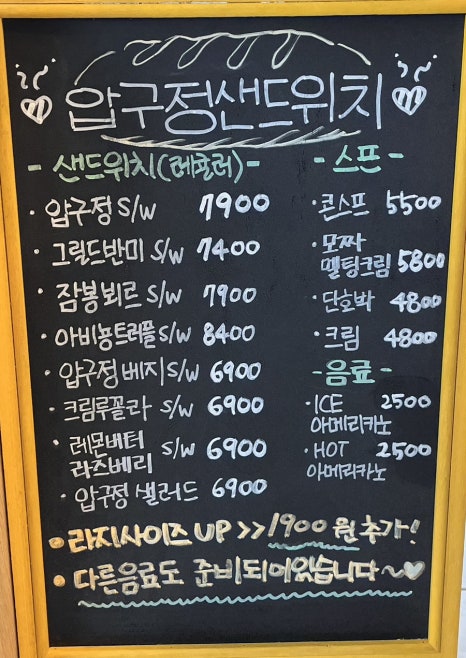 압구정샌드위치
- 샌드위치(레귤러) -
· 압구정 S/W 7900
· 그릴드반미 S/W 7400
· 잠봉뵈르 S/W 7900
· 아비뇽트러플 S/W 8400
· 압구정 베지 S/W 6900
· 크림루꼴라 S/W 6900
· 레몬버터
라즈베리 S/W 6900
· 압구정 샐러드 6900
- 스프 -
· 콘스프 5500
· 모짜
멜팅크림 5800
· 단호박 4800
· 크림 4800
- 음료 -
· ICE 2500
아메리카노
· HOT 2500
아메리카노
• 라지사이즈 UP >> 1900 원 추가!
• 다른음료도 준비되어있습니다~♡